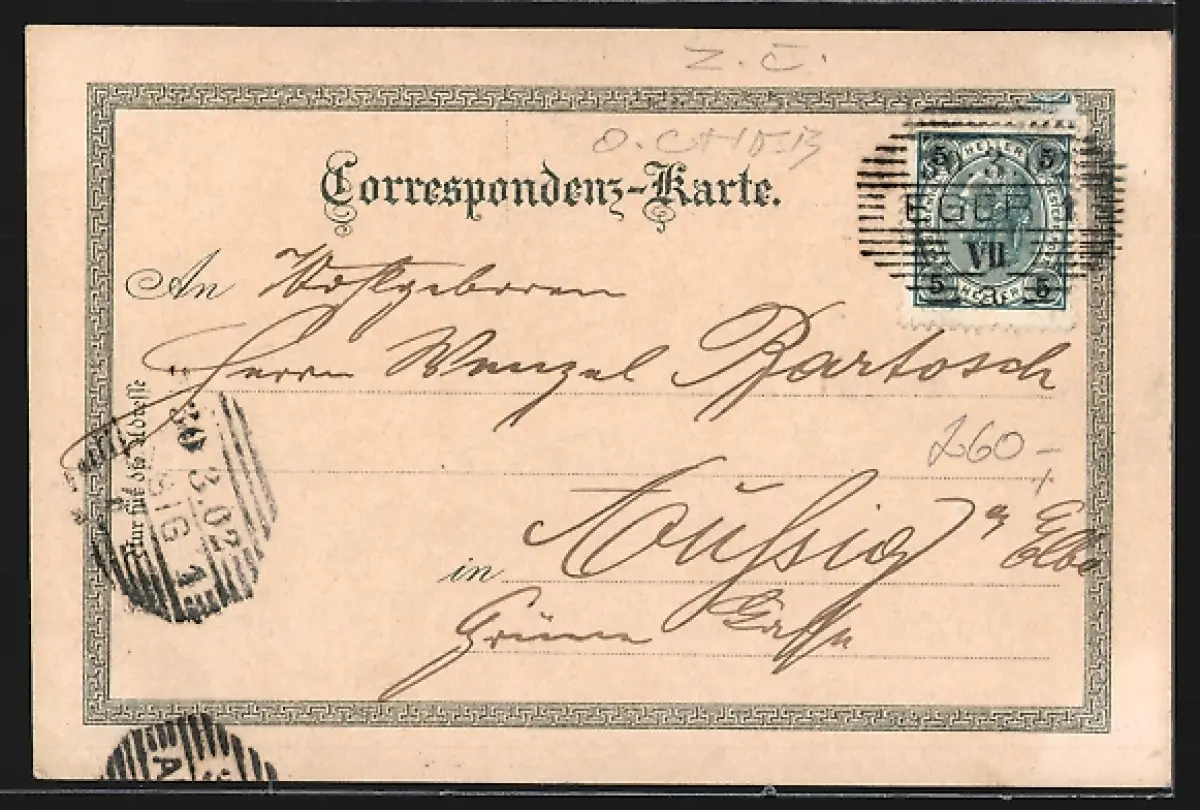 Z. Č.
O. CHEB
Correspondenz-Karte.
5 HELLER 5
EGER 1
VII
5 HELLER 5
An Wohlgeboren
Herrn Wenzel Bartosch
Nur für die Adresse
30 3.02
SSIG 1
260-
in Aussig a/ Elbe
Grüne Gasse
A